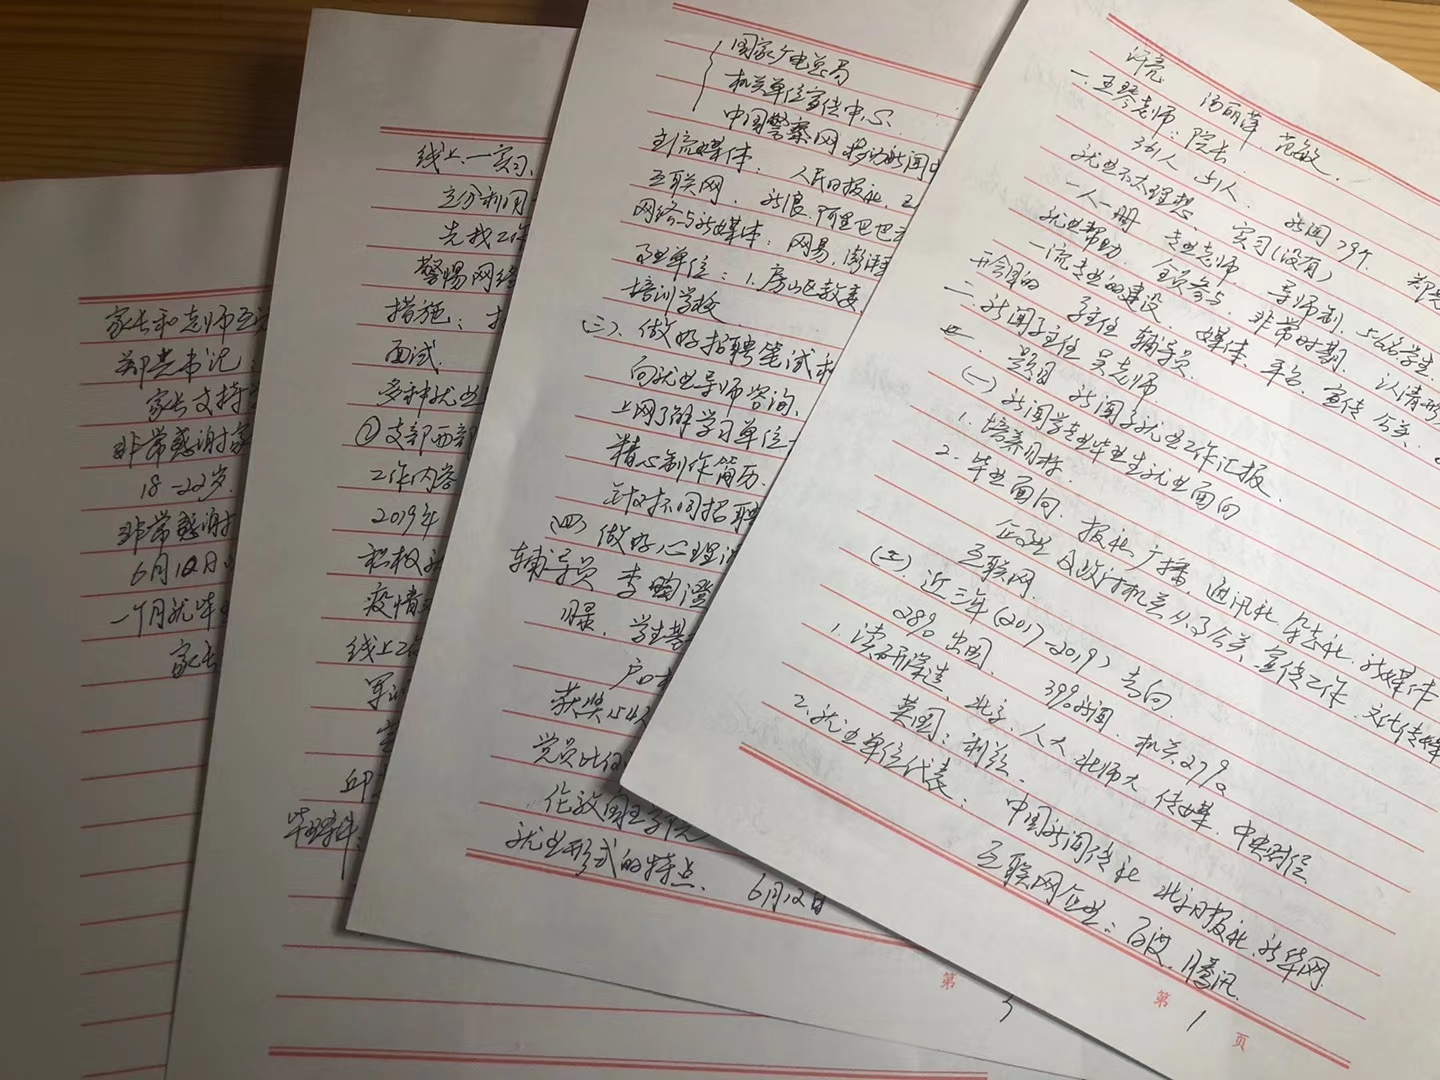 许亮 汤丽萍 范敏
一.王琴老师:院长
361人 51人 新闻79个 郑
就业不太理想 实习(没有)
一人一册 专业老师 导师制. 566名学生
就业帮助. 全员参与. 非常时期. 认清形
一流专业的建设. 媒体. 平台. 宣传 公关.
开会目的 系主任 辅导员.
二.新闻系主任 吴老师
题目 新闻系就业工作汇报.
(一)新闻学专业毕业生就业面向
1.培养目标
2.毕业面向. 报社 广播. 通讯社. 杂志社. 新媒体
互联网.
企事业及政府机关从事公关. 宣传工作. 文化传媒
近三年(2017-2019)去向.
28% 出国. 39%新闻. 机关27%
1.读研深造. 北京. 人大 北师大 传媒. 中央财经
英国:利兹.
2.就业单位代表: 中国新闻传社 北京日报社. 新华网.
互联网企业:百度. 腾讯.
第 1 页
国家广电总局
机关单位宣传中心.
中国警察网 移动新闻
主流媒体: 人民日报社.
互联网. 新浪. 阿里巴巴
网络与新媒体:网易. 澎湃
事业单位:1.房山区教委
培训学校
(三).做好招聘笔试
向就业导师咨询.
上网了解学习单位
精心制作简历.
针对不同招聘
四.做好心理
辅导员 李
目录. 学生基
户口
获奖54人
党员比例
伦敦国王学院
就业形式的特点. 6月12日
第
线上一实习.
充分利用
先找工作
警惕网络
措施:
面试.
多种就业
②支部西部
工作内容
2019年
积极
疫情
线上工作
军
邱
家长和老师
郑亮书记:
家长支持
非常感谢家
18-22岁.
非常感谢
6月12日
一个月就毕
家长